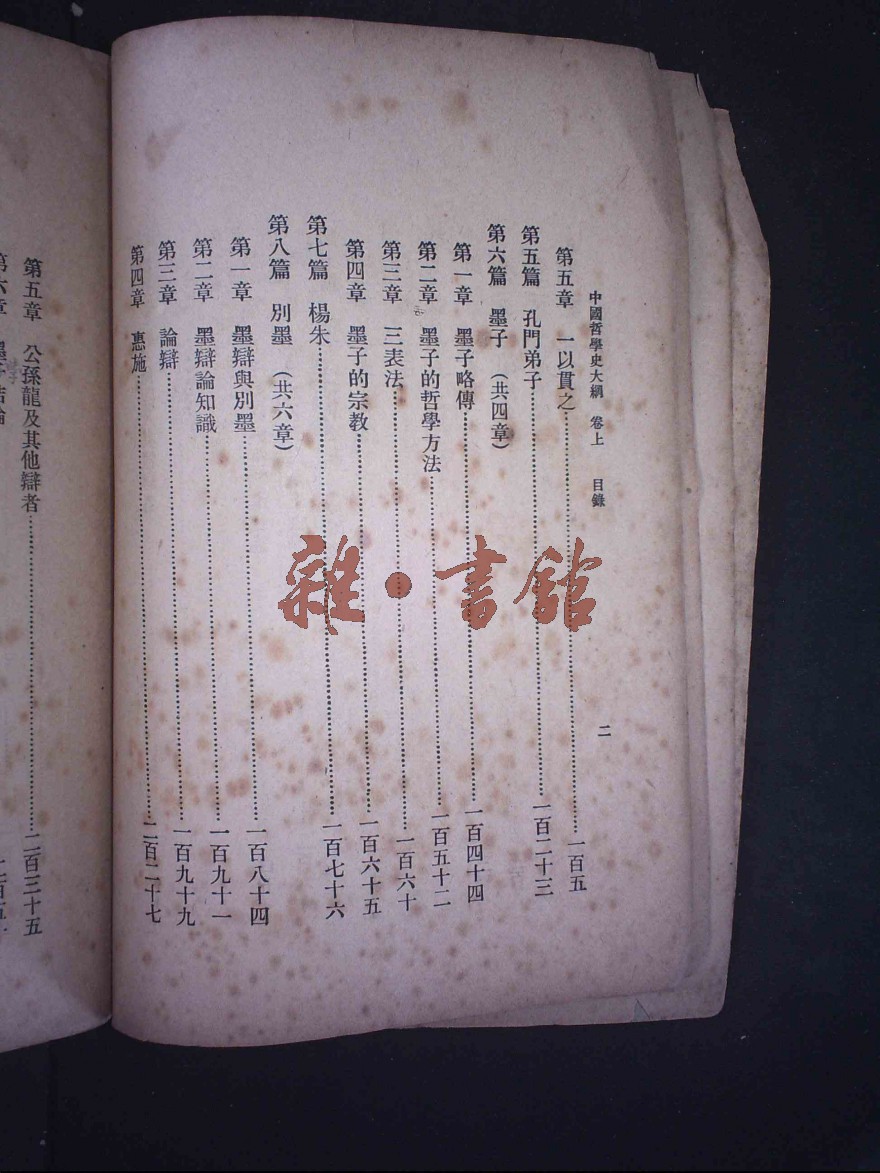 中國哲學史大綱 卷上 目錄 二
第五章 一以貫之 一百五
第五篇 孔門弟子 一百二十三
第六篇 墨子 (共四章)
第一章 墨子略傳 一百四十四
第二章 墨子的哲學方法 一百五十二
第三章 三表法 一百六十
第四章 墨子的宗教 一百六十五
第七篇 楊朱 一百七十六
第八篇 別墨 (共六章)
第一章 墨辯與別墨 一百八十四
第二章 墨辯論知識 一百九十一
第三章 論辯 一百九十九
第四章 惠施 二百二十七
第五章 公孫龍及其他辯者 二百三十五
第六章
雜·書館